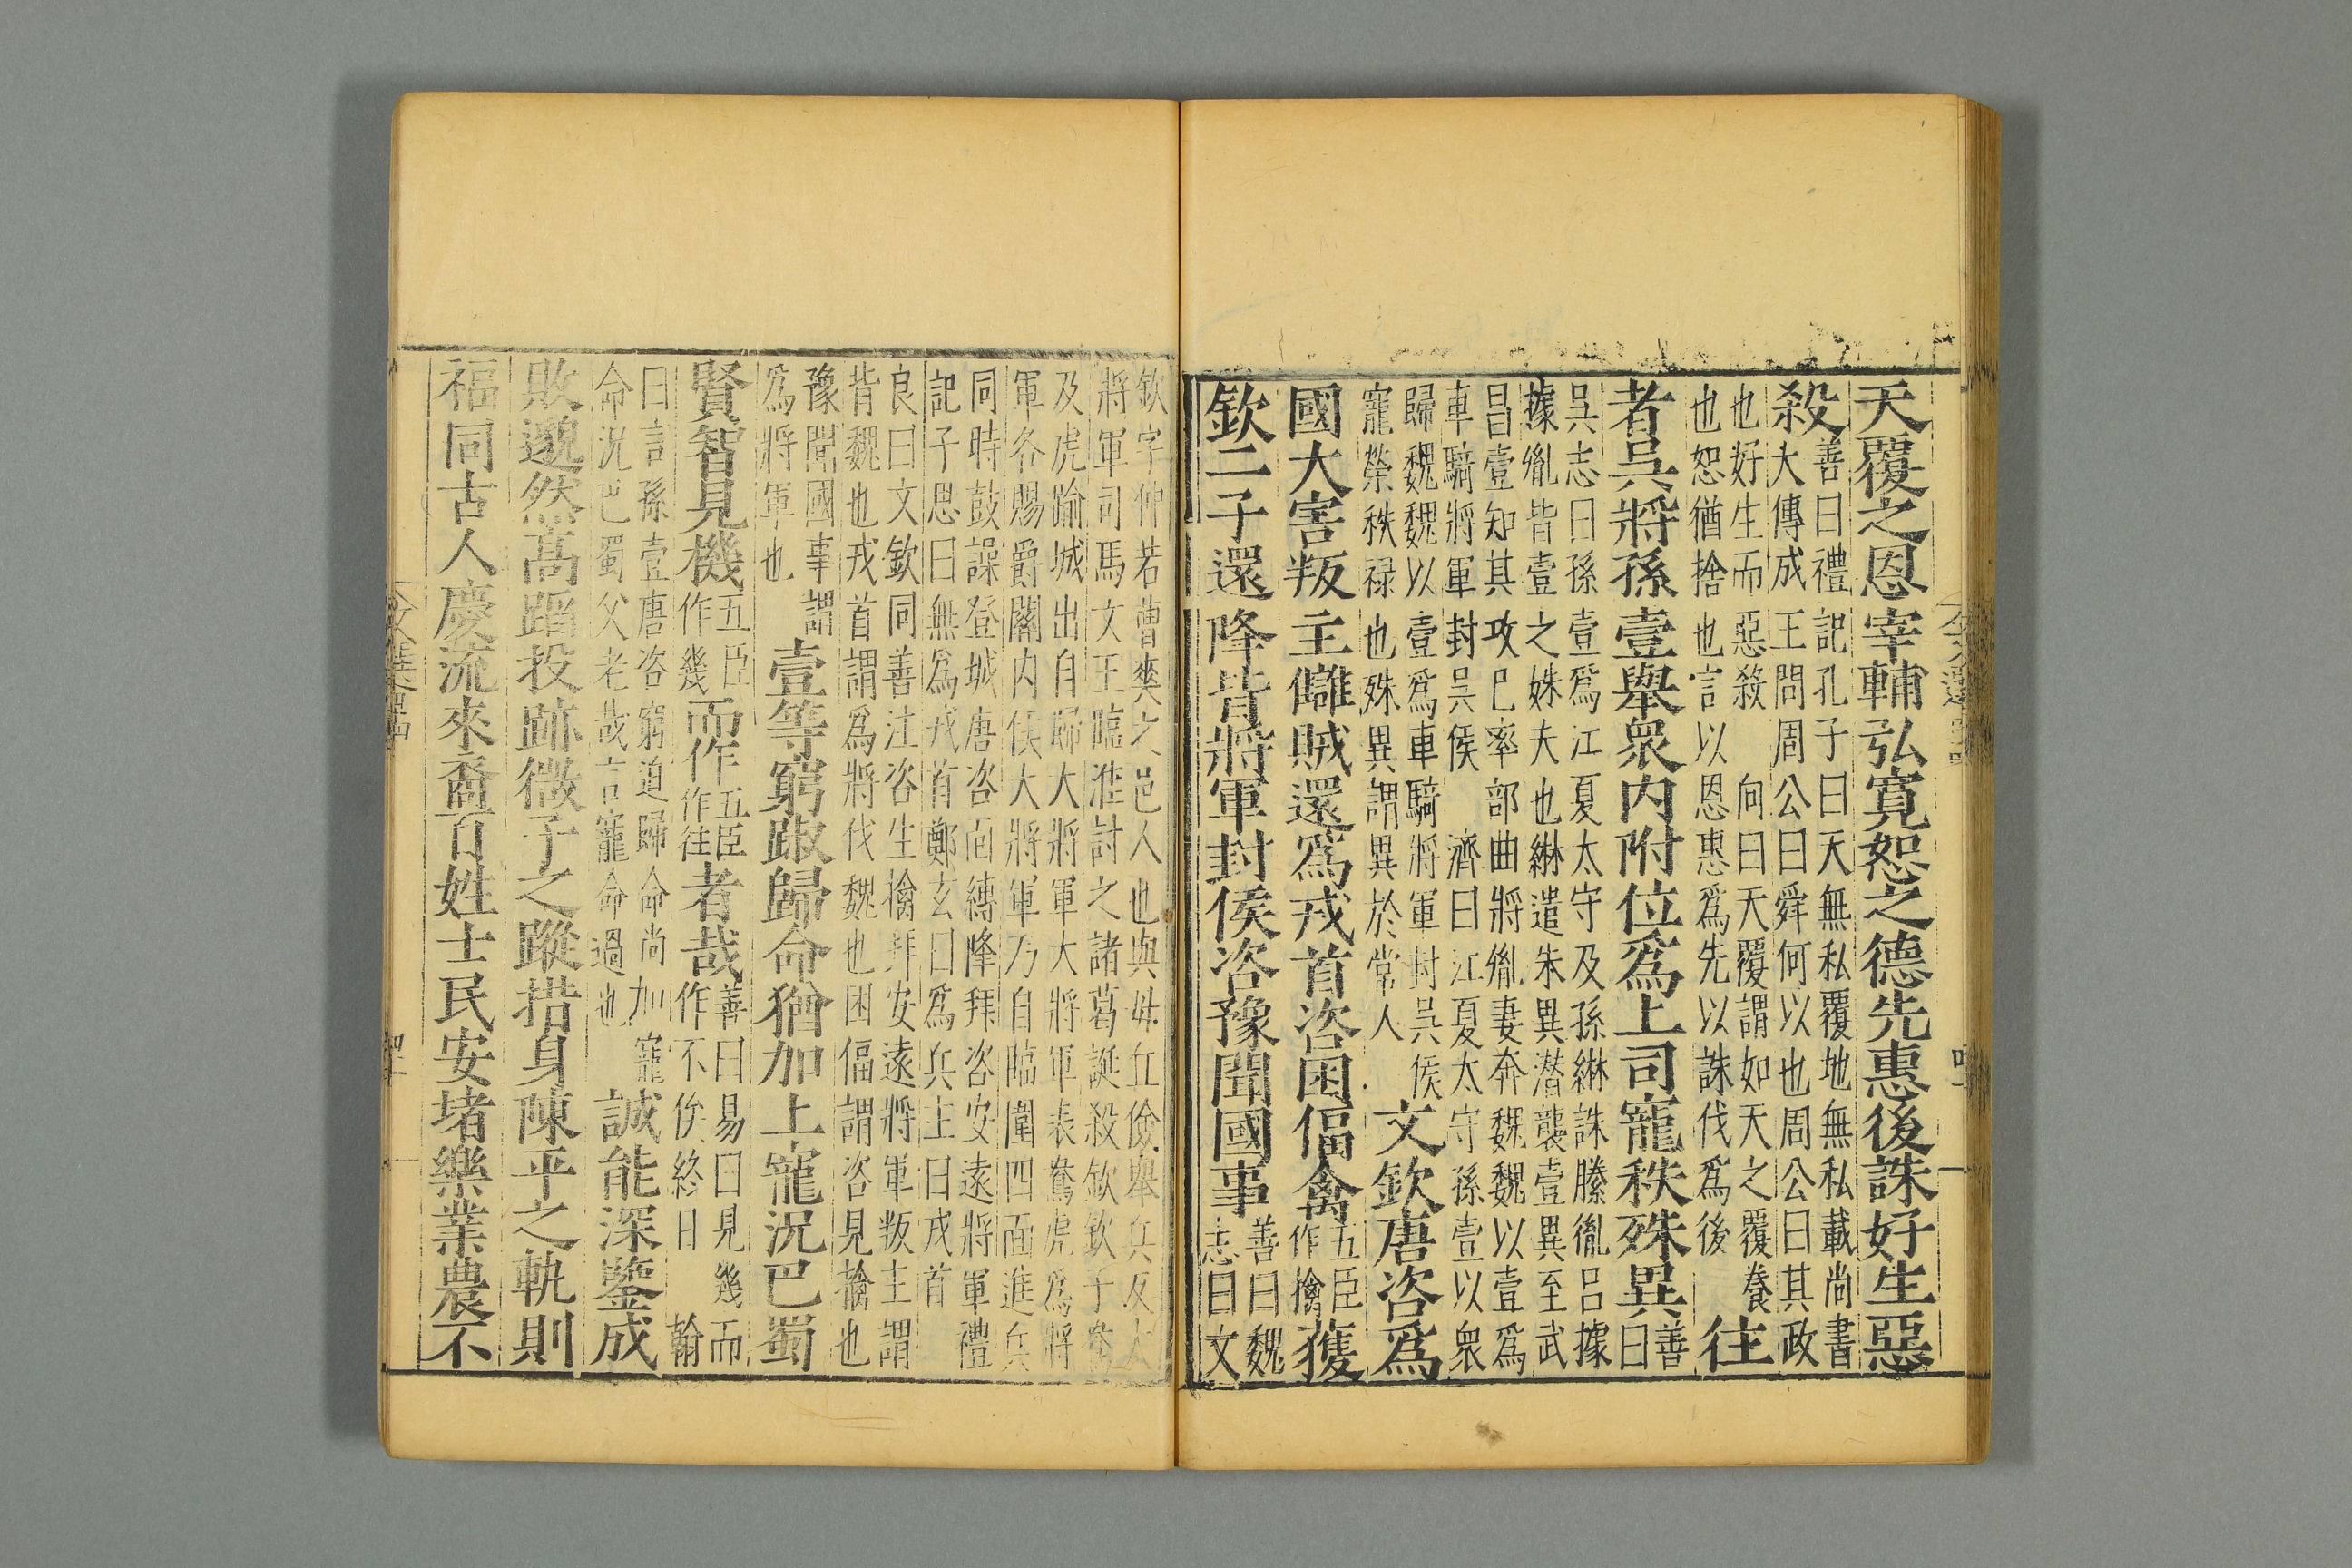 天覆之恩宰輔弘寛恕之德先惠後誅好生惡
殺
善曰禮記孔子曰天無私覆地無私載尚書
大傳成王問周公曰舜何以也周公曰其政
也好生而惡殺 向曰天覆謂如天之覆養
也恕猶捨也言以恩惠爲先以誅伐爲後
往
者吳將孫壹舉衆内附位爲上司寵秩殊異
善
曰
吳志曰孫壹爲江夏太守及孫綝誅滕胤吕據
據胤皆壹之妹夫也綝遣朱異潜襲壹異至武
昌壹知其攻巳率部曲將胤妻奔魏魏以壹爲
車騎將軍封吳侯 濟曰江夏太守孫壹以衆
歸魏魏以壹爲車騎將軍封吳侯
寵榮秩禄也殊異謂異於常人
文欽唐咨爲
國大害叛主讎賊還爲戎首咨困偪禽
五臣
作擒
獲
欽二子還降皆將軍封侯咨豫聞國事
善曰魏
志曰文
欽字仲若曹爽之邑人也與毋丘儉舉兵反大
將軍司馬文王臨淮討之諸葛誕殺欽欽子鴦
及虎踰城出自歸大將軍大將軍表鴦虎爲將
軍各賜爵關内侯大將軍乃自臨圍四面進兵
同時鼓譟登城唐咨面縛降拜咨安遠將軍禮
記子思曰無爲戎首鄭玄曰爲兵主曰戎首
良曰文欽同善注咨生擒拜安遠將軍叛主謂
背魏也戎首謂爲將伐魏也困偪謂咨見擒也
豫聞國事謂
爲將軍也
壹等窮踧歸命猶加上寵況巴蜀
賢智見機
五臣
作幾
而作
五臣
作往
者哉
善曰易曰見幾而
作不俟終日 翰
曰言孫壹唐咨窮迫歸命尚加寵
命况巴蜀父老哉言寵命過也
誠能深鑒成
敗邈然高蹈投跡微子之蹤措身陳平之軌則
福同古人慶流來裔百姓士民安堵樂業農不